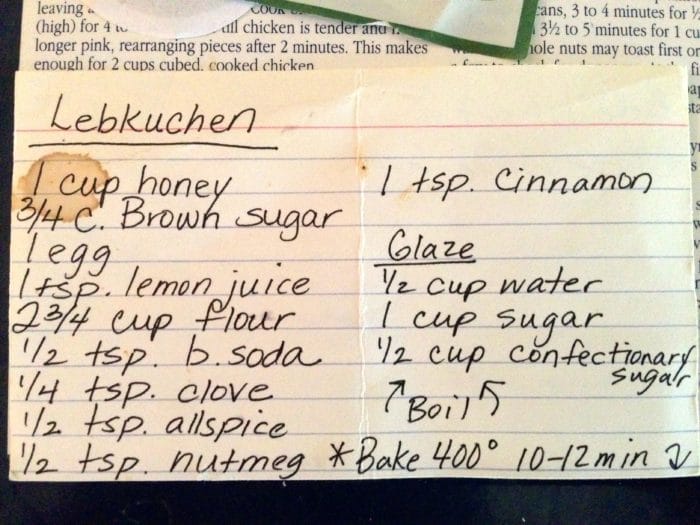 leaving
(high) for 4
till chicken is tender and
longer pink, rearranging pieces after 2 minutes. This makes
enough for 2 cups cubed, cooked chicken
cans, 3 to 4 minutes for
3½ to 5 minutes for 1 cu
hole nuts may toast first on
Lebkuchen
1 cup honey
3/4 C. Brown sugar
1 egg
1 tsp. lemon juice
2 3/4 cup flour
1/2 tsp. b.soda
1/4 tsp. clove
1/2 tsp. allspice
1/2 tsp. nutmeg
1 tsp. Cinnamon
Glaze
1/2 cup water
1 cup sugar
1/2 cup confectionary
sugar
↗ Boil ↖
*Bake 400° 10-12 min